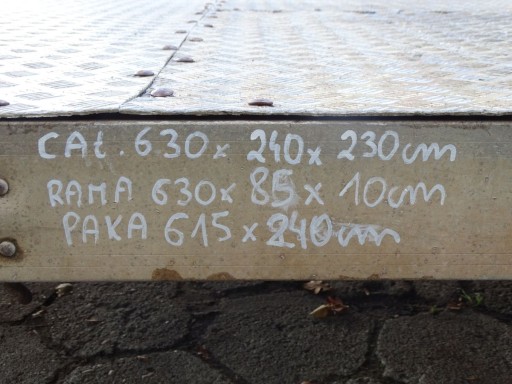 CAŁ. 630 x 240 x 230 cm
RAMA 630 x 85 x 10 cm
PAKA 615 x 240 cm